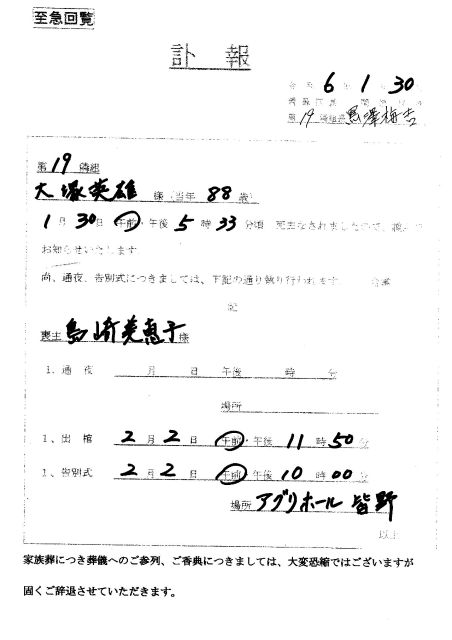 至急回覧
訃報
令和 6 年 1 月 30
第 19 隣組長 黒澤梅吉
第 19 隣組
大塚英雄 様(当年 88 歳)
1月 30 日 午前・午後 5 時 33 分頃 死亡なされましたので、謹んで
お知らせいたします
尚、通夜、告別式につきましては、下記の通り執り行われます。
記
喪主 島崎美恵子 様
1. 通夜 月 日 午後 時 分
場所
1、出棺 2 月 2 日 午前・午後 11 時 50 分
1、告別式 2 月 2 日 午前・午後 10 時 00 分
場所 アグリホール 皆野
以上
家族葬につき葬儀へのご参列、ご香典につきましては、大変恐縮ではございますが
固くご辞退させていただきます。